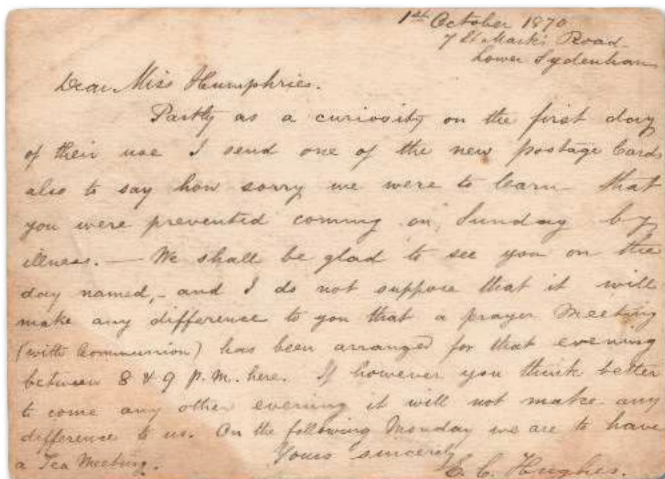 1st October 1870
7 St Mark's Road
Lower Sydenham
Dear Miss Humphries.
Partly as a curiosity on the first day
of their use I send one of the new postage Cards
also to say how sorry we were to learn that
you were prevented coming on Sunday by
illness. — We shall be glad to see you on the
day named, - and I do not suppose that it will
make any difference to you that a prayer Meeting
(with Communion) has been arranged for that evening
between 8 & 9 p.m. here. If however you think better
to come any other evening it will not make any
difference to us. On the following Monday we are to have
a Tea Meeting.
Yours sincerely
E. C. Hughes.